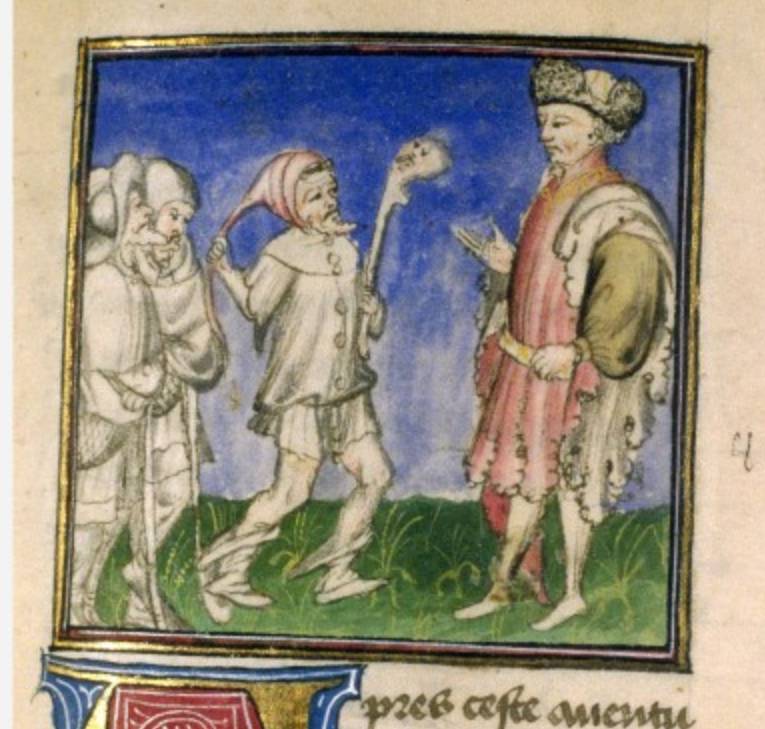 pres ceste auentu